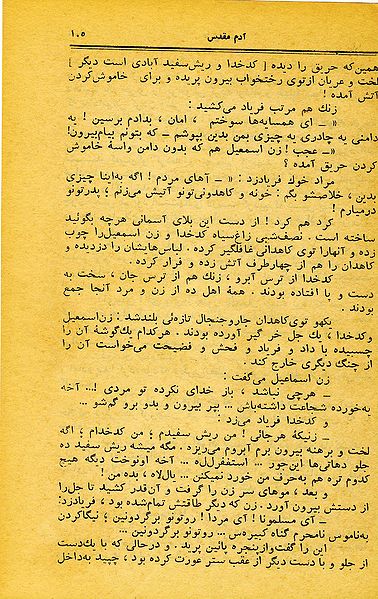 آدم مقدس
۱۰۵
همین‌که حریق را دیده [ کدخدا و ریش‌سفید آبادی است دیگر ]
لخت و عریان ازتوی رختخواب بیرون پریده و برای خاموش‌کردن
آتش آمده !
زنك هم مرتب فریاد می‌کشید :
« ـ ای همسایه‌ها سوختم ، امان ، بدادم برسین ! یه
دامنی یه چادری یه چیزی بمن بدین بپوشم ـ که بتونم بیام‌بیرون!
« ـ عجب ! زن اسمعیل هم که بدون دامن واسهٔ خاموش
کردن حریق آمده ؟
مراد خوك فریادزد : « ـ آهای مردم ! اگه به‌اینا چیزی
بدین ، خلاصشو بگم : خونه و کاهدونی‌تونو آتیش می‌زنم ؛ پدرتونو
درمیارم !
کرد هم کرد ! از دست این بلای آسمانی هرچه بگوئید
ساخته است . نصف‌شبی زاغ‌سیاه کدخدا و زن اسمعیل‌را چوب
زده و آنهارا توی کاهدانی غافلگیر کرده . لباس‌هایشان را دزدیده و
کاهدان را هم از چهارطرف آتش زده و فرار کرده .
کدخدا از ترس آبرو ، زنك هم از ترس جان ، سخت به
دست و پا افتاده بودند . همهٔ اهل ده از زن و مرد آنجا جمع
بودند .
یکهو توی‌کاهدان جاروجنجال تازه‌ئی بلندشد : زن‌اسمعیل
وکدخدا ، یك جل خر گیر آورده بودند . هرکدام یك‌گوشهٔ آن را
چسبیده با داد و فریاد و فحش و فضیحت می‌خواست آن را
از چنگ دیگری خارج کند .
زن اسماعیل می‌گفت :
ـ هرچی نباشد ، باز خدای نکرده تو مردی !... آخه
یه‌خورده شجاعت داشته‌باش ... بپر بیرون و بدو برو گم‌شو ...
و کدخدا فریاد می‌زد :
ـ زنیکهٔ هرجائی ! من ریش سفیدم ؛ من کدخدام ، اگه
لخت و برهنه بیرون برم آبروم می‌ریزه . مگه میشه ریش سفید ده
جلو دهاتی‌ها این‌جور ... استغفرلله ... آخه اونوخت دیگه هیچ
کدوم تره هم به‌حرف من خورد نمیکنن ... یالاه ، بده من !
و بعد ، موهای سر زن را گرفت و آن‌قدر کشید تا جل‌را
از دستش بیرون آورد . زن که دیگر طاقتش تمام‌شده بود ، فریادزد:
ـ آی مسلمونا ! آی مردا ! روتونو برگردونین ؛ نیگاکردن
به‌ناموس نامحرم گناه کبیره‌س ... روتونو برگردونین ...
این را گفت‌وازپنجره پائین پرید . و درحالی که با یك‌دست
از جلو و با دست دیگر از عقب ستر عورت کرده بود ، چپید به‌داخل